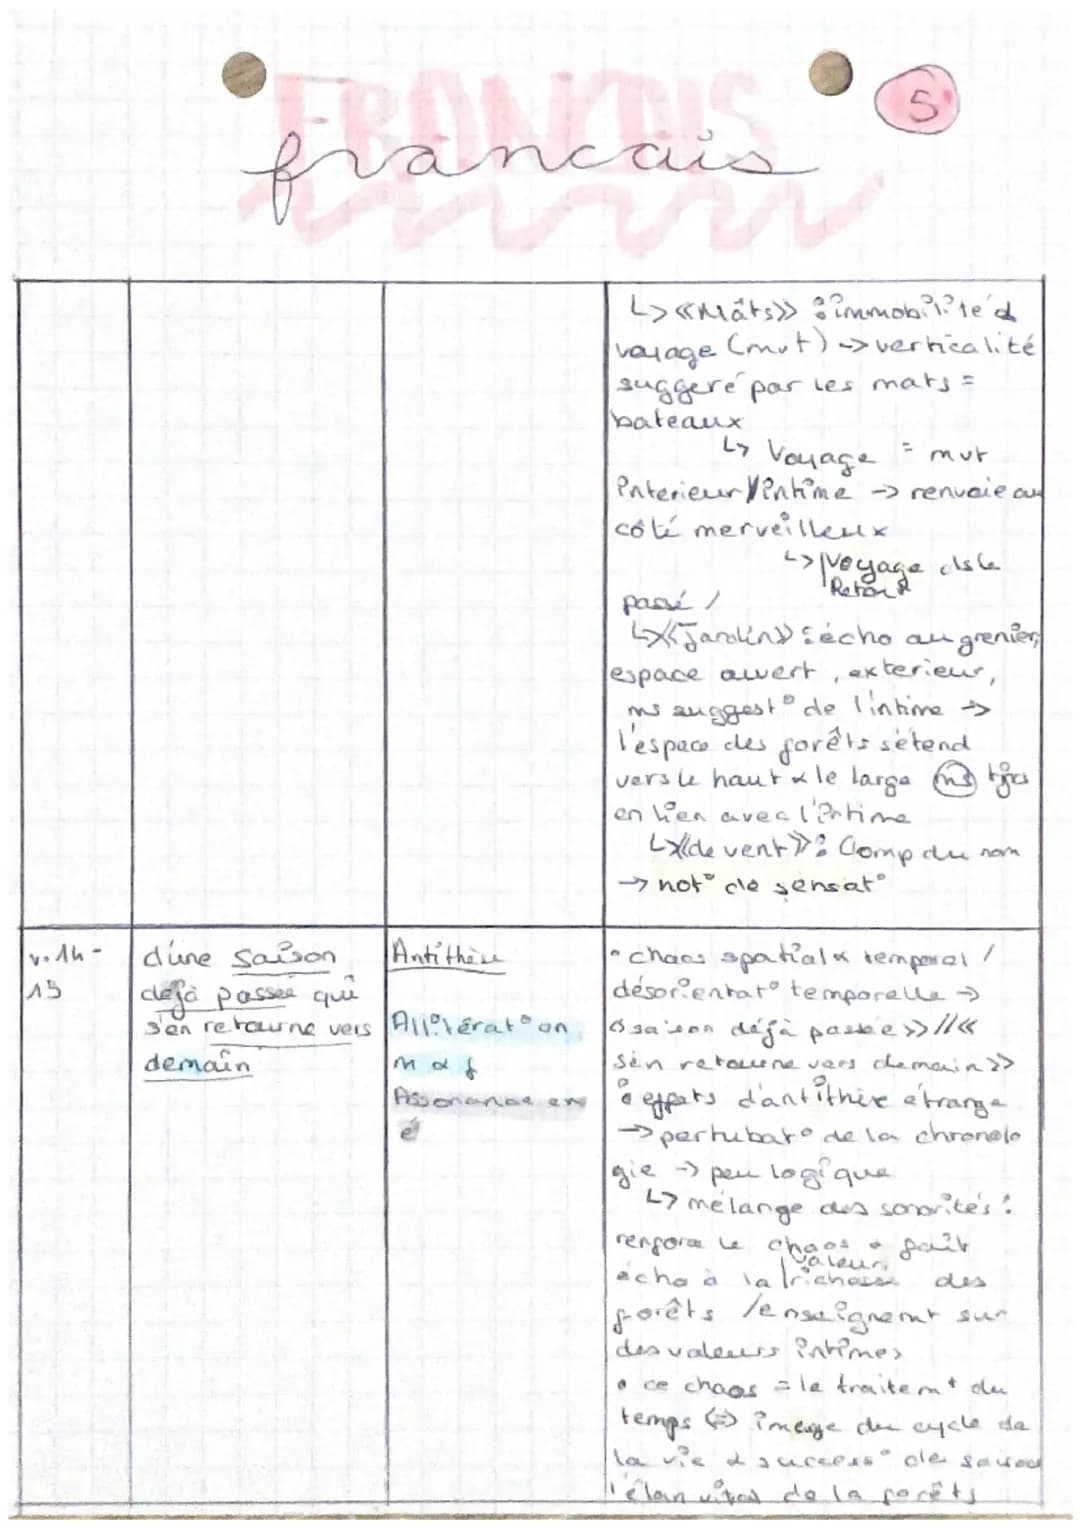 FRANCAIS
5
francais
↳ «Mâts» : immobilité d
voyage (mvt) -> verticalité
suggéré par les mats =
bateaux
↳ Voyage = mvt
interieur/intime -> renvoie au
côté merveilleux
↳ Voyage ds le
Retour
passé /
↳ «Jardin» : écho au grenier,
espace ouvert, exterieur,
ms suggest° de l'intime ->
l'espace des forêts s'étend
vers le haut & le large ms tjrs
en lien avec l'intime
↳ «de vent» : Comp du nom
-> not° de sensat°
v. 14-
15
d'une saison
déjà passée qui
s'en retourne vers
demain
Antithèse
Allitérat°on
m & f
Assonance en
é
• chaos spatial & temporel /
désorientat° temporelle ->
«saison déjà passée» // «
s'en retourne vers demain»
: effets d'antithèse étrange
-> pertubat° de la chronolo
gie -> peu logique
↳ mélange des sonorités :
renforce le chaos & fait
valeur
écho à la richesse des
forêts / enseignemt sur
des valeurs intimes
• ce chaos = le traitemt du
temps <=> image du cycle de
la vie & success° de saison
l'élan vital de la forêts